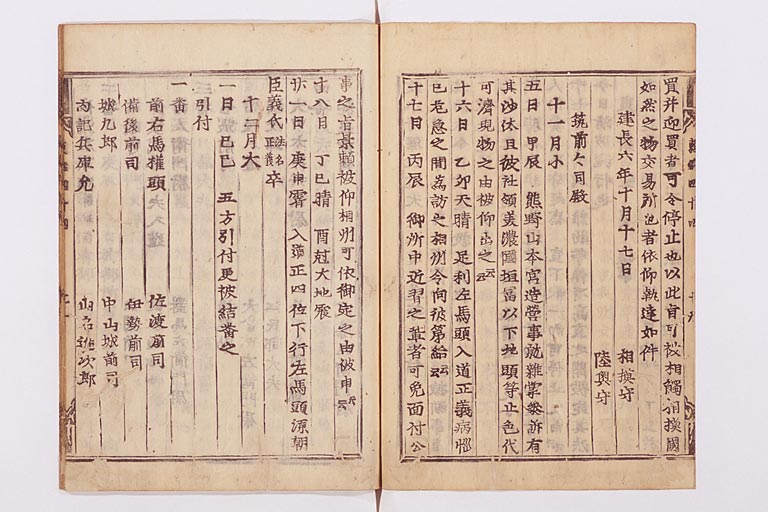 買并迎買者可令停止也以此旨可被相觸相摸國
如然之物交易所也者依仰執達如件
建長六年十月十七日
相摸守
陸奥守
筑前々司殿
十一月小
五日 甲辰 熊野山本宮造營事就雜掌參訴有
其沙汰且彼社領美濃國垣冨以下地頭等止色代
可濟現物之由被仰出之云云
十六日 乙卯天晴 足利左馬頭入道正義病惱
已危急之間為訪之相州令向彼第給云云
十七日 丙辰 御所中近習之輩者可免面付公
事之旨景頼被仰相州可依御定之由被申云云
十八日 丁巳晴 酉尅大地震
廿一日 庚申霽 入道正四位下行左馬頭源朝
臣義氏法名正義卒
十二月大
一日 己巳 五方引付更被結番之
引付
一番
前右馬權頭 佐渡前司
備後前司 伊勢前司
城九郎 中山城前司
內記兵庫允 山名進次郎